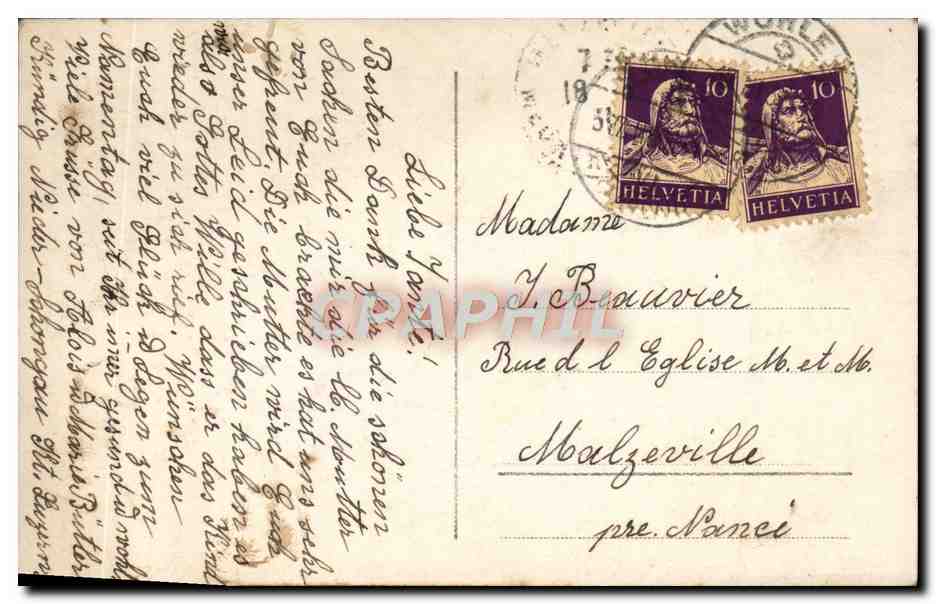 Liebe Tante!
Besten Dank für die schönen
Sachen die mir die lb. Mutter
von Euch brachte es hat uns sehr
gefreut. Die Mutter wird Euch
unser Leid geschrieben haben es
also Gottes Wille dass er das Kind
wieder zu sich rief. Wünschen
Euch viel Glück & Segen zum
Namenstag, seit Ihr immer gesund & wohl
Viele Grüsse von Alois & Marie Bütler
Kündig Nieder-Schongau Kt. Luzern
WOHLE
18
10
HELVETIA
10
HELVETIA
Madame
J. Beauvier
Rue d l Eglise M. et M.
Malzeville
pre. Nancé
CPAPHIL